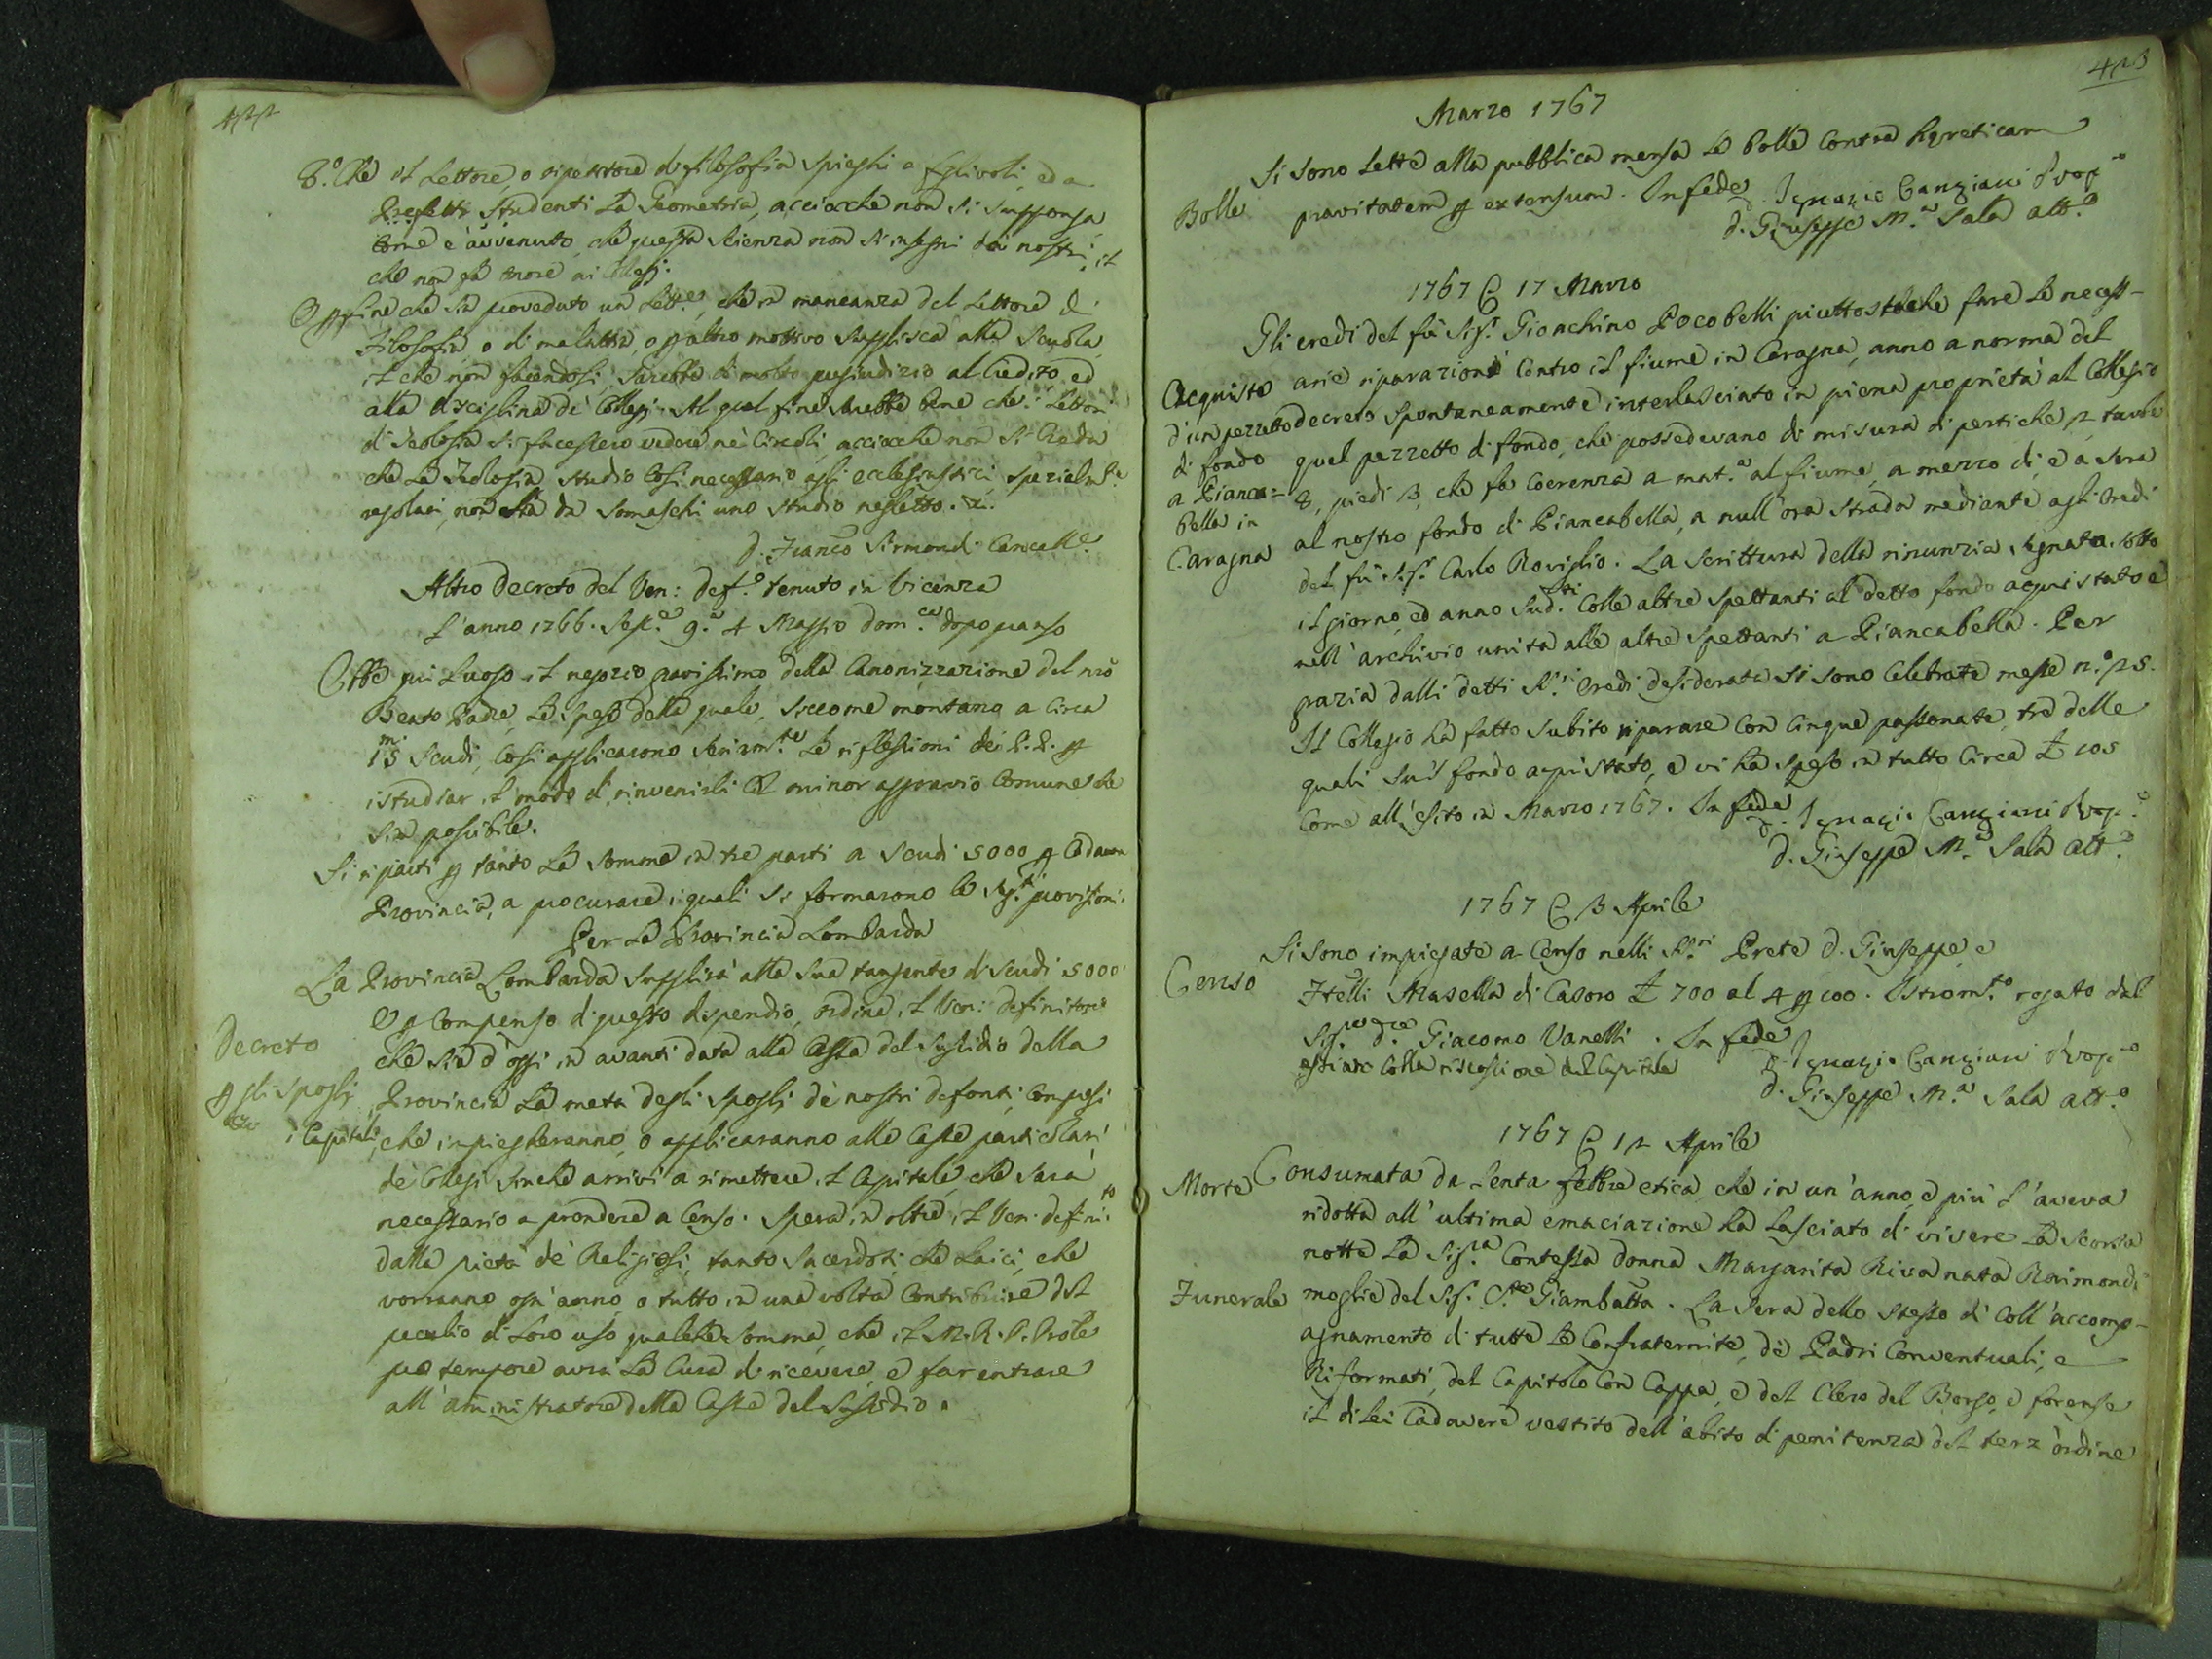 422
8.° Che il Lettore, o ripetitore di filosofia spieghi a figlivoli, ed a
Prefetti Studenti la Geometria, acciocchè non si supponga
come è avvenuto, che questa scienza non s'insegni dai nostri, il
che non fa onore ai Collegj.
fine che sia proveduto un Lett.e, che in mancanza del Lettore di
Filosofia o di malattia, o p altro mottivo supplisca alla Scuola,
il che non facendosi, sarebbe di molto pregiudizio al Credito, ed
alla disciplina de' Collegj. Al qual fine sarebbe bene che i Lettori
di Teologia si facessero vedere nè Circoli, acciocchè non si Creda
che la Teologia studio Così necessario agli ecclesiastici, spezialm.e
regolari, non sia da Somaschi uno studio negletto.
D. Franco Sirmondi Cancell.e
Altro Decreto del Ven: Def.o tenuto in Vicenza
L'anno 1766. Sess.e 9.a 4 Maggio Dom.ca dopo pranso
Ebbe qui Luogo il negozio gravissimo della Canonizzazione del nrō
Beato Padre, le spese della quale, siccome montano a Circa
15 m. scudi, Così applicarono seriam.te le riflessioni dei P.P. p
istudiar il modo di rinvenirli Col minor aggravio Comune che
sia possibile.
Si ripartì p tanto la somma in tre parti a scudi 5000 p Cadauna
Provincia, a procurare i quali si formarono le seg.ti provisioni.
Per la Provincia Lombarda
La Provincia Lombarda supplirà alla sua tangente di scudi 5000
E p Compenso di questo dispendio, ordina il Ven: Definitorio
Decreto
che sia d'oggi in avanti data alla Cassa del Sussidio della
p gli Spoglj
Provincia la metà degli Spoglj de' nostri defonti, Compresi
i Capitali, che impiegheranno, o applicaranno alle Casse particolari
de' Collegj sinchè arrivi a rimettere il Capitale, che sarà
necessario a prendere a Censo. Spera in oltre il Ven. Defini.to
dalla pietà de' Religiosi, tanto Sacerdoti, che Laici, che
vorranno ogn'anno, o tutto in una volta Contribuire del
peculio di loro uso qualche somma, che il M. R. P. Prov.le
pro tempore avrà la Cura di ricevere, e far entrare
all'amministratore della Cassa del Sussidio.
423
Marzo 1767
Si sono lette alla pubblica mensa le Bolle Contra hęreticam
Bolle
pravitatem p extensum. In fede D. Ignazio Canziani Prop.o
D. Giuseppe M.a Sala Att.o
1767 17 Marzo
Gli eredi del fù Sig.r Gioachino Pocobelli piuttosto che fare le necess-
Acquisto
arie riparazioni Contro il fiume in Caragna, anno a norma del
d'un pezzetto
decreto spontaneamente interlasciato in piena proprietà al Collegio
di fondo
quel pezzetto di fondo, che possedevano di misura di pertiche 2 tavole
a Pianca=
8, piedi 3, che fa Coerenza a mat.a al fiume, a mezzo dì, e a sera
bella in
al nostro fondo di Piancabella, a null'ora strada mediante agli Eredi
Caragna
del fù Sig.r Carlo Roviglio. La Scrittura della rinunzia segnata sotto
il giorno, ed anno sud.ti Colle altre spettanti al detto fondo acquistato è
nell'archivio unita alle altre spettanti a Piancabella. Per
grazia dalli detti SS.ri Eredi desiderata si sono Celebrate messe n.o 25.
Il Collegio ha fatto subito riparare Con Cinque passonate, tre delle
quali su'l fondo acquistato, e vi ha speso in tutto Circa £ 105
Come all'esito in Marzo 1767. In fede D. Ignazio Canziani Prop.o
D. Giuseppe M.a Sala Att.o
1767 3 Aprile
Si sono impiegate a Censo nelli SS.ri Prete D. Giuseppe, e
Censo
Ftelli Masella di Casoro £ 700 al 4 p 100. Istrom.to rogato dal
Sig.r D. Giacomo Vanelli. In fede
estinto Colla riscossione del Capitale
D. Ignazio Canziani Prop.o
D. Giuseppe M.a Sala Att.o
1767 12 Aprile
Morte
Consumata da lenta febbre etica, che in un'anno, e più l'aveva
ridotta all'ultima emaciazione ha lasciato di vivere la scorsa
notte la Sig.ra Contessa Donna Margarita Riva nata Raimondi
Funerale
moglie del Sig. C.te Giambatta. La sera dello stesso dì Coll'accomp-
agnamento di tutte le Confraternite, dè Padri Conventuali, e
Riformati, del Capitolo Con Cappa, e del Clero del Borgo, e forense
il di lei Cadavere vestito dell'abito di penitenza del terz'ordine